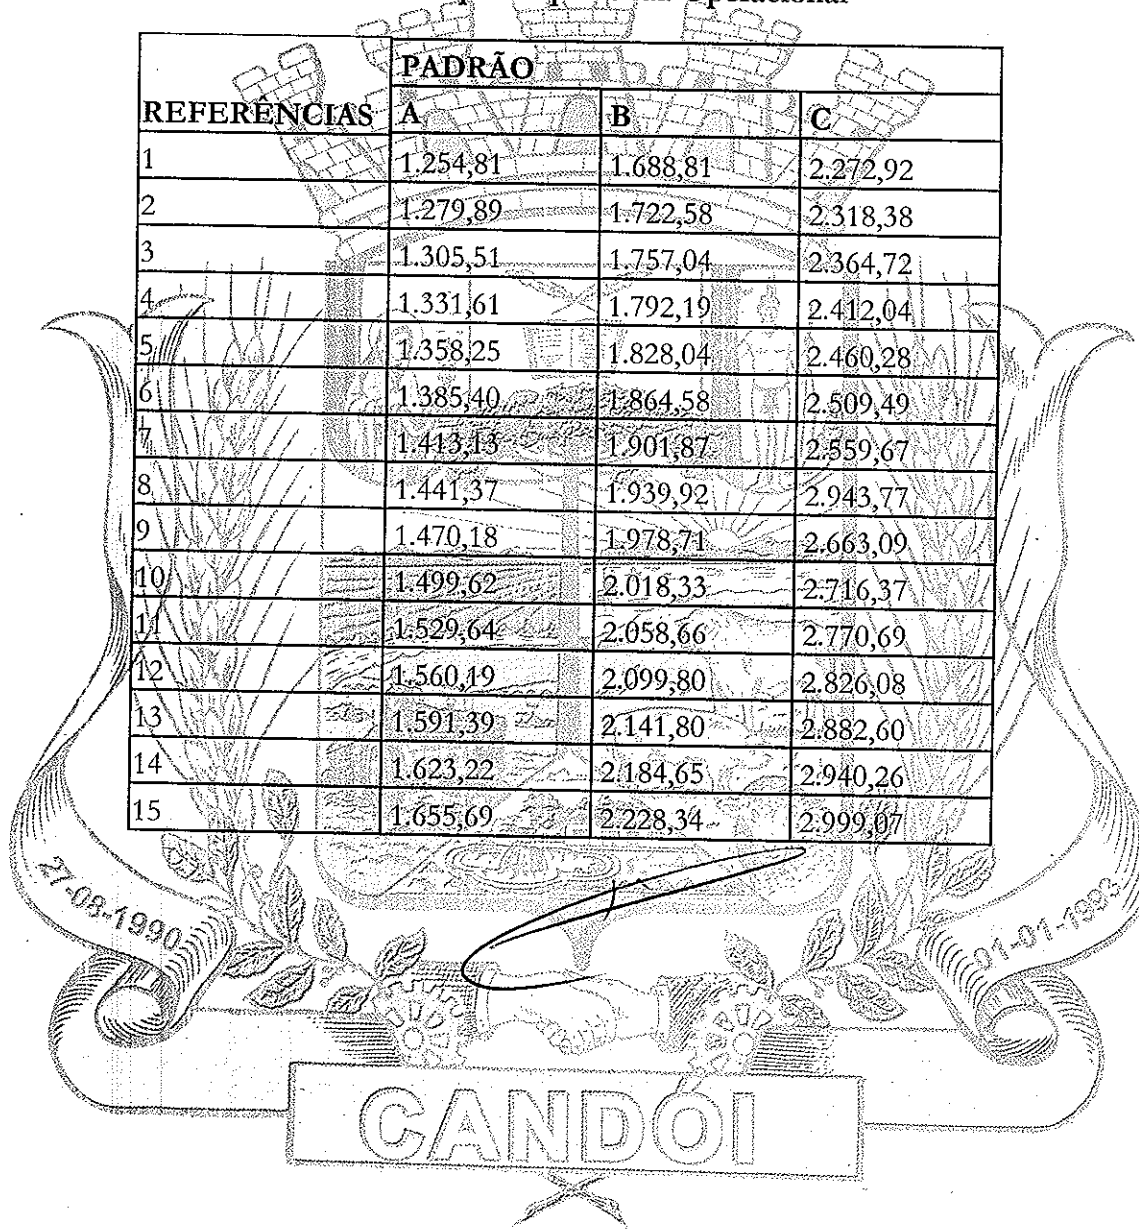 Operacional
PADRÃO
REFERÊNCIAS A B C
1 1.254,81 1.688,81 2.272,92
2 1.279,89 1.722,58 2.318,38
3 1.305,51 1.757,04 2.364,72
4 1.331,61 1.792,19 2.412,04
5 1.358,25 1.828,04 2.460,28
6 1.385,40 1.864,58 2.509,49
7 1.413,13 1.901,87 2.559,67
8 1.441,37 1.939,92 2.943,77
9 1.470,18 1.978,71 2.663,09
10 1.499,62 2.018,33 2.716,37
11 1.529,64 2.058,66 2.770,69
12 1.560,19 2.099,80 2.826,08
13 1.591,39 2.141,80 2.882,60
14 1.623,22 2.184,65 2.940,26
15 1.655,69 2.228,34 2.999,07
27-08-1990
01-01-1993
CANDÓI